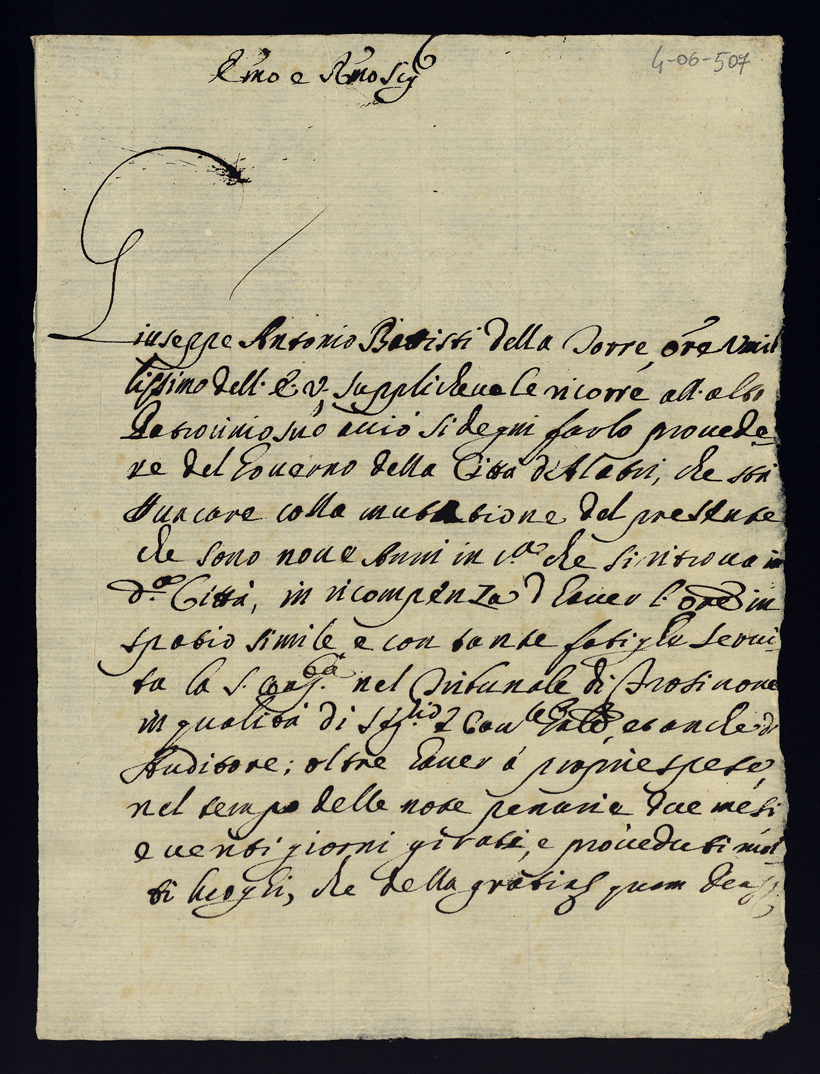 4-06-507
Emo e Rmo Sig
Giuseppe Antonio Battisti della Torre, ore Umil
lissimo dell. E. V. supplicheuole ricorre all. alto
Patrocinio suo acciò si degni farlo prouede
re del Gouerno della Città d'Alatri, che stà
Vacare colla mutatione del presente
che sono noue Anni in ca che si ritroua in
da. Città, in ricompenza d'hauer l' ore in
spatio simile e con tante fatighe serui
ta la S. Cong. nel Tribunale di Frosinone
in qualità di et anche di
Auditore; oltre hauer à proprie spese,
nel tempo delle note penurie due mesi
e uenti giorni girati, e proueduti mol
ti luoghi, che della gratia quam Deus